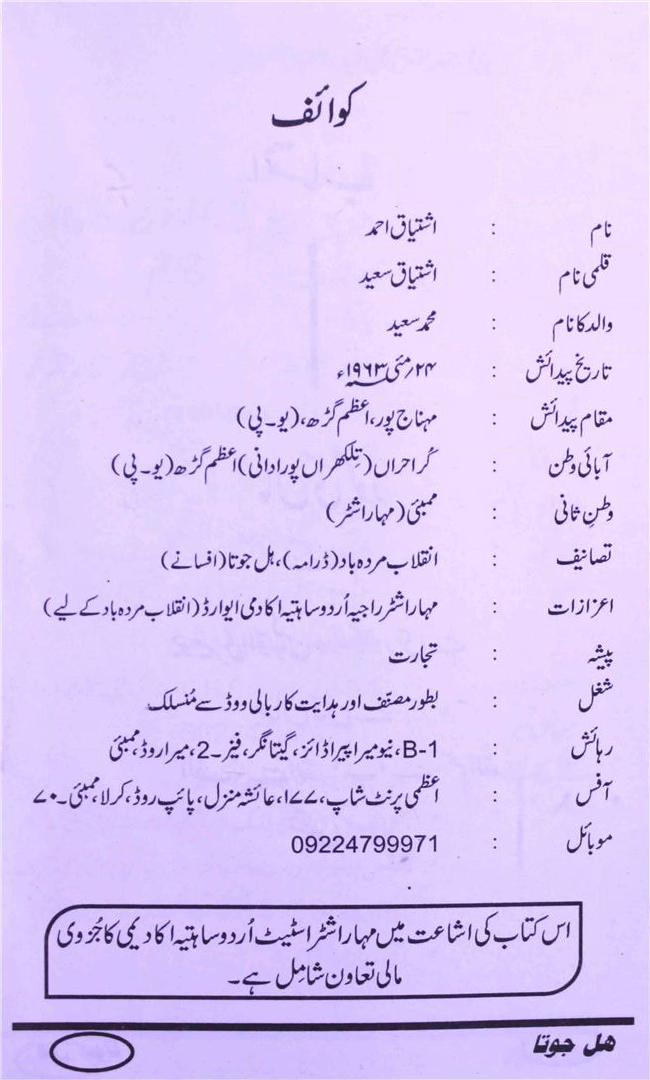 کوائف
نام : اشتیاق احمد
قلمی نام : اشتیاق سعید
والد کا نام : محمد سعید
تاریخ پیدائش : ۲۴؍مئی ۱۹۶۳ء
مقام پیدائش : مہناج پور، اعظم گڑھ، (یو۔پی)
آبائی وطن : گراحراں (تِلکھراں پورادانی) اعظم گڑھ (یو۔پی)
وطنِ ثانی : ممبئی (مہاراشٹر)
تصانیف : انقلاب مردہ باد (ڈرامہ)، ہل جوتا (افسانے)
اعزازات : مہاراشٹر راجیہ اُردو ساہتیہ اکادمی ایوارڈ (انقلاب مردہ باد کے لیے)
پیشہ : تجارت
شغل : بطور مصنّف اور ہدایت کار بالی ووڈ سے مُنسلک
رہائش : B-1، نیو میرا پیراڈائز، گیتا نگر، فیز۔2، میرا روڈ، ممبئی
آفس : اعظمی پرنٹ شاپ، ۱۷۷، عائشہ منزل، پائپ روڈ، کرلا، ممبئی۔۷۰
موبائل : 09224799971
اس کتاب کی اشاعت میں مہاراشٹر اسٹیٹ اُردو ساہتیہ اکادیمی کا جُزوی
مالی تعاون شامِل ہے۔
ھل جوتا